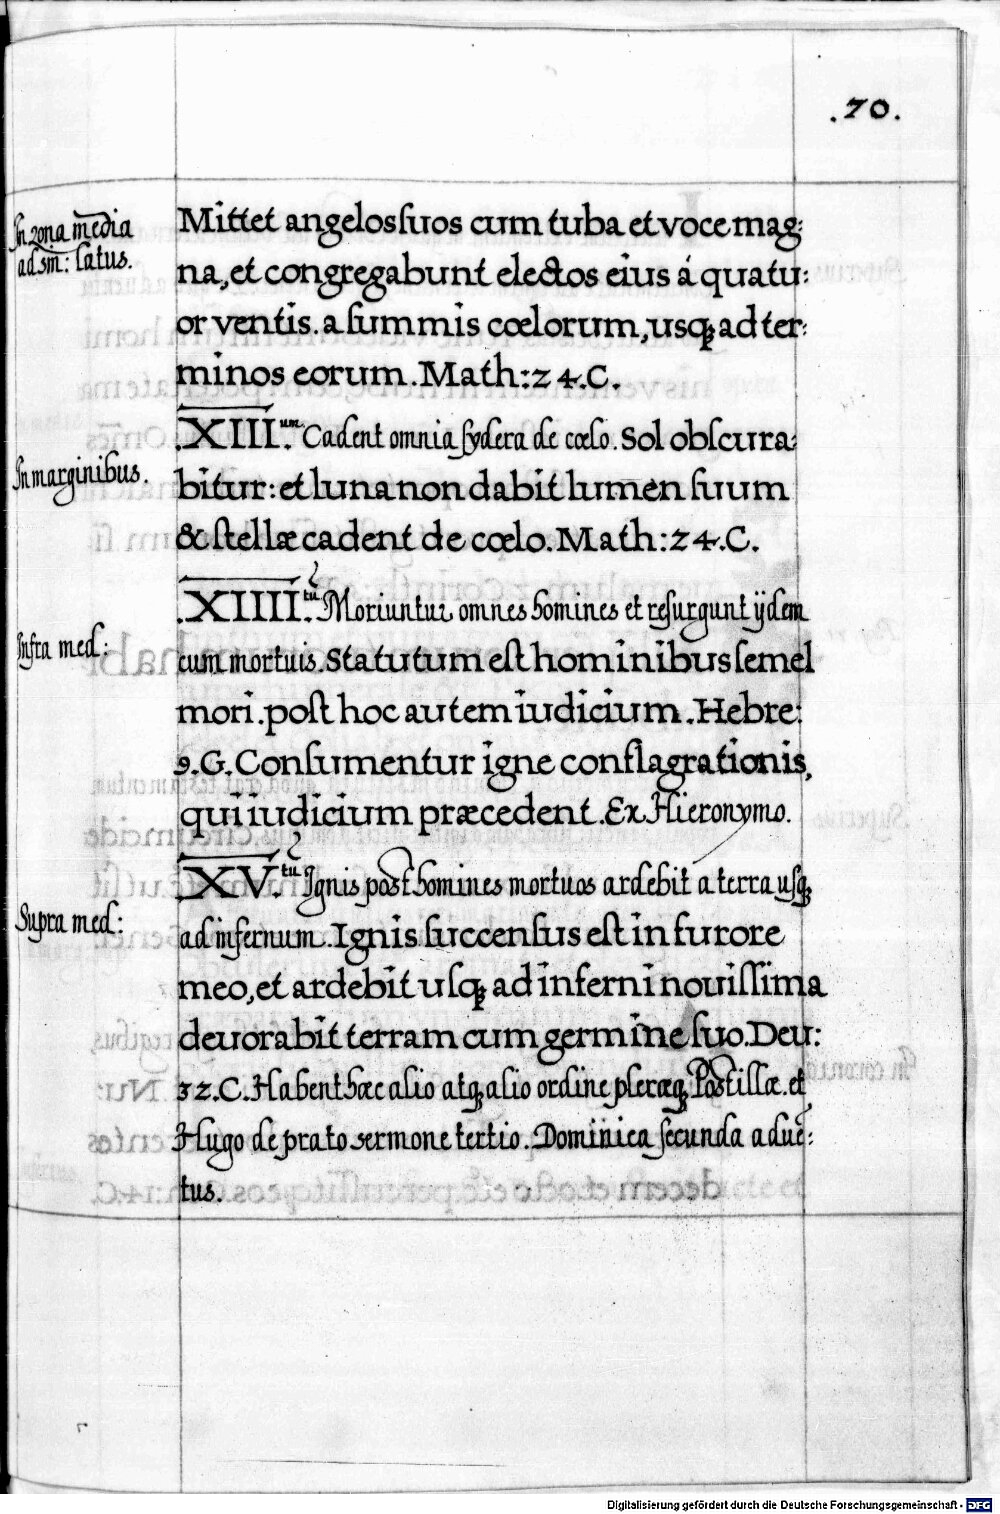 .70.
In zona media
ad sm̄: latus.
Mittet angelos ſuos cum tuba et voce mag:
na, et congregabunt electos eius á quatu:
or ventis. a ſummis cœlorum, uſq; ad ter:
minos eorum. Math: 24.C.
In marginibus.
.XIII.um Cadent omnia ſydera de cœlo. Sol obſcura:
bitur: et luna non dabit lumen ſuum
& ſtellæ cadent de cœlo. Math: 24.C.
Infra med:
.XIIII.tū Moriuntur omnes homines et reſurgunt ijdem
cum mortuis. Statutum eſt hominibus ſemel
mori. poſt hoc autem iudicium. Hebre:
9.G. Conſumentur igne conflagrationis,
qui iudicium præcedent. Ex Hieronymo.
Supra med:
.XV.tū Ignis poſt homines mortuos ardebit a terra uſq;
ad infernum. Ignis ſuccenſus eſt in furore
meo, et ardebit uſq; ad inferni nouiſſima
deuorabit terram cum germine ſuo. Deu:
32.C. Habent hæc alio atq; alio ordine pleræq; Poſtillæ. et
Hugo de prato sermone tertio. Dominica ſecunda aduē:
tus.
Digitalisierung gefördert durch die Deutsche Forschungsgemeinschaft - DFG